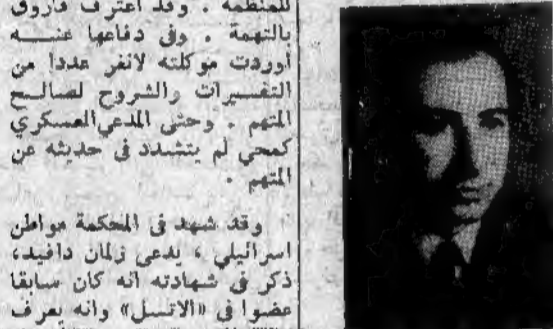 للمنظمة . وقد اعترف فاروق
بالتهمة . وفى دفاعها عنـــه
أوردت موكلته لانغر عددا من
التفسيرات والشروح لصالـح
المتهم . وحتى المدعي العسكري
كمحي لم يتشدد فى حديثه عن
المتهم .
وقد شهد فى المحكمة مواطن
اسرائيلي ، يدعى زلمان دافيد،
ذكر فى شهادته انه كان سابقا
عضوا فى «الاتسل» وانه يعرف